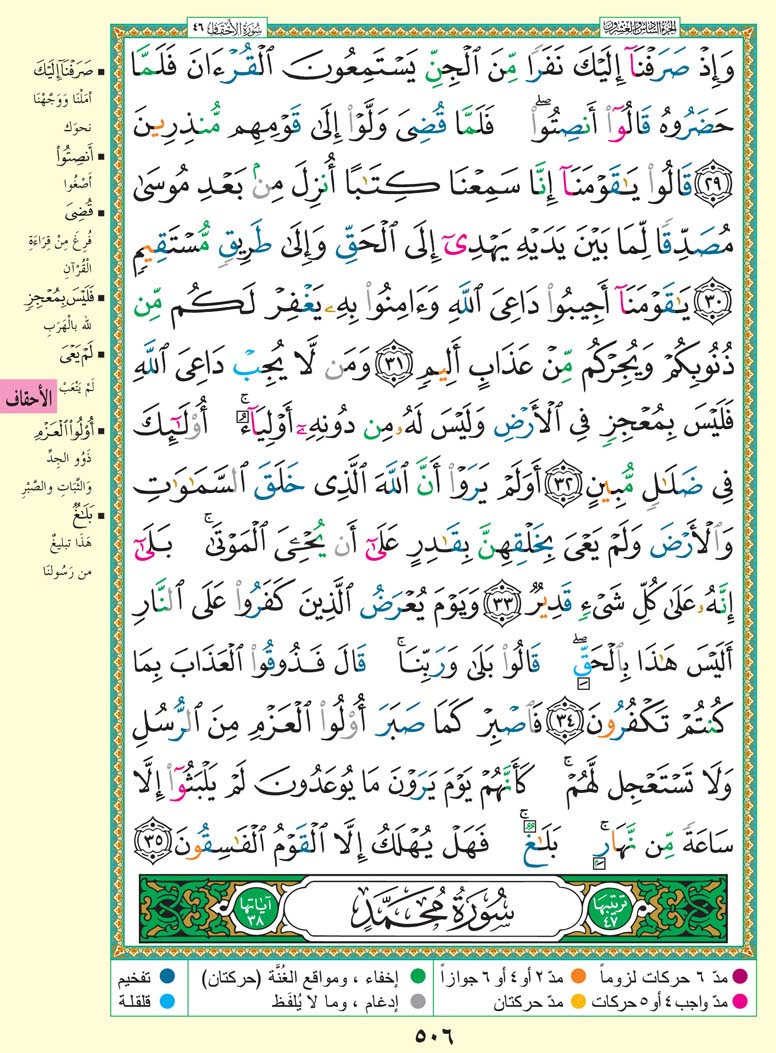 سُورَةُ الأَحْقَافِ ٤٦
الجُزءُ السَّادِسُ وَالعِشْرُونَ
وَإِذْ صَرَفْنَآ إِلَيْكَ نَفَرًا مِّنَ ٱلْجِنِّ يَسْتَمِعُونَ ٱلْقُرْءَانَ فَلَمَّا
حَضَرُوهُ قَالُوٓا۟ أَنصِتُوا۟ ۖ فَلَمَّا قُضِىَ وَلَّوْا۟ إِلَىٰ قَوْمِهِم مُّنذِرِينَ
﴿٢٩﴾ قَالُوا۟ يَـٰقَوْمَنَآ إِنَّا سَمِعْنَا كِتَـٰبًا أُنزِلَ مِنۢ بَعْدِ مُوسَىٰ
مُصَدِّقًا لِّمَا بَيْنَ يَدَيْهِ يَهْدِىٓ إِلَى ٱلْحَقِّ وَإِلَىٰ طَرِيقٍ مُّسْتَقِيمٍ
﴿٣٠﴾ يَـٰقَوْمَنَآ أَجِيبُوا۟ دَاعِىَ ٱللَّهِ وَءَامِنُوا۟ بِهِۦ يَغْفِرْ لَكُم مِّن
ذُنُوبِكُمْ وَيُجِرْكُم مِّنْ عَذَابٍ أَلِيمٍ ﴿٣١﴾ وَمَن لَّا يُجِبْ دَاعِىَ ٱللَّهِ
فَلَيْسَ بِمُعْجِزٍ فِى ٱلْأَرْضِ وَلَيْسَ لَهُۥ مِن دُونِهِۦٓ أَوْلِيَآءُ ۚ أُو۟لَـٰٓئِكَ
فِى ضَلَـٰلٍ مُّبِينٍ ﴿٣٢﴾ أَوَلَمْ يَرَوْا۟ أَنَّ ٱللَّهَ ٱلَّذِى خَلَقَ ٱلسَّمَـٰوَٰتِ
وَٱلْأَرْضَ وَلَمْ يَعْىَ بِخَلْقِهِنَّ بِقَـٰدِرٍ عَلَىٰٓ أَن يُحْـِۧىَ ٱلْمَوْتَىٰ ۚ بَلَىٰٓ
إِنَّهُۥ عَلَىٰ كُلِّ شَىْءٍ قَدِيرٌ ﴿٣٣﴾ وَيَوْمَ يُعْرَضُ ٱلَّذِينَ كَفَرُوا۟ عَلَى ٱلنَّارِ
أَلَيْسَ هَـٰذَا بِٱلْحَقِّ ۖ قَالُوا۟ بَلَىٰ وَرَبِّنَا ۚ قَالَ فَذُوقُوا۟ ٱلْعَذَابَ بِمَا
كُنتُمْ تَكْفُرُونَ ﴿٣٤﴾ فَٱصْبِرْ كَمَا صَبَرَ أُو۟لُوا۟ ٱلْعَزْمِ مِنَ ٱلرُّسُلِ
وَلَا تَسْتَعْجِل لَّهُمْ ۚ كَأَنَّهُمْ يَوْمَ يَرَوْنَ مَا يُوعَدُونَ لَمْ يَلْبَثُوٓا۟ إِلَّا
سَاعَةً مِّن نَّهَارٍۭ ۚ بَلَـٰغٌ ۚ فَهَلْ يُهْلَكُ إِلَّا ٱلْقَوْمُ ٱلْفَـٰسِقُونَ ﴿٣٥﴾
ترتيبها ٤٧
سُورَةُ مُحَمَّدٍ
آياتها ٣٨
صَرَفْنَآ إِلَيْكَ
أمَلْنَا وَوَجَّهْنَا
نحوَك
أَنصِتُوا۟
أصْغُوا
قُضِىَ
فُرِغَ مِنْ قِرَاءَةِ
القُرْآنِ
فَلَيْسَ بِمُعْجِزٍ
لله بالْهَرَبِ
لَمْ يَعْىَ
لَمْ يَتْعَبْ
الأحقاف
أُو۟لُوا۟ ٱلْعَزْمِ
ذَوُو الجِدِّ
وَالثَّبَاتِ والصَّبْرِ
بَلَـٰغٌ
هَذَا تبليغٌ
من رَسُولِنَا
مدّ ٦ حركات لزوماً
مدّ ٢ أو ٤ أو ٦ جوازاً
إخفاء ، ومواقع الغُنَّة (حركتان)
تفخيم
مدّ واجب ٤ أو ٥ حركات
مدّ حركتان
إدغام ، وما لا يُلفَظ
قلقلة
٥٠٦